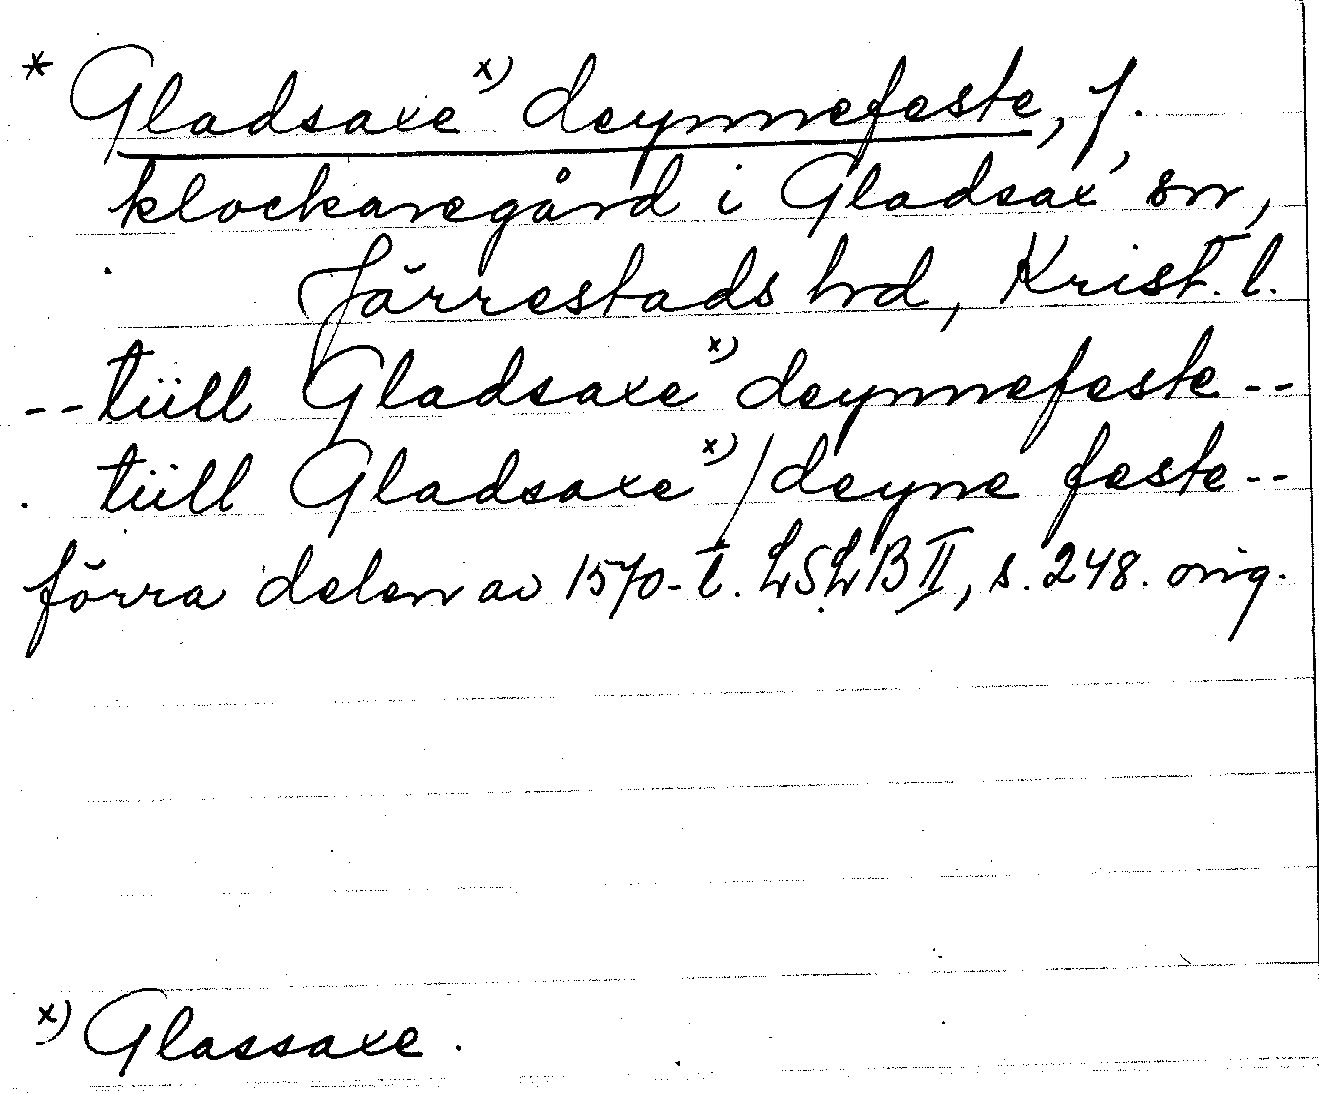 * Gladsaxe x) deynnefeste, f.
klockaregård i Gladsax' sn,
Järrestads hrd, Krist. l.
-- tüll Gladsaxe x) deynnefeste --
tüll Gladsaxe x) / deyne feste --
förra delen av 1570-t. LSLB II, s. 248. orig.
x) Glassaxe.